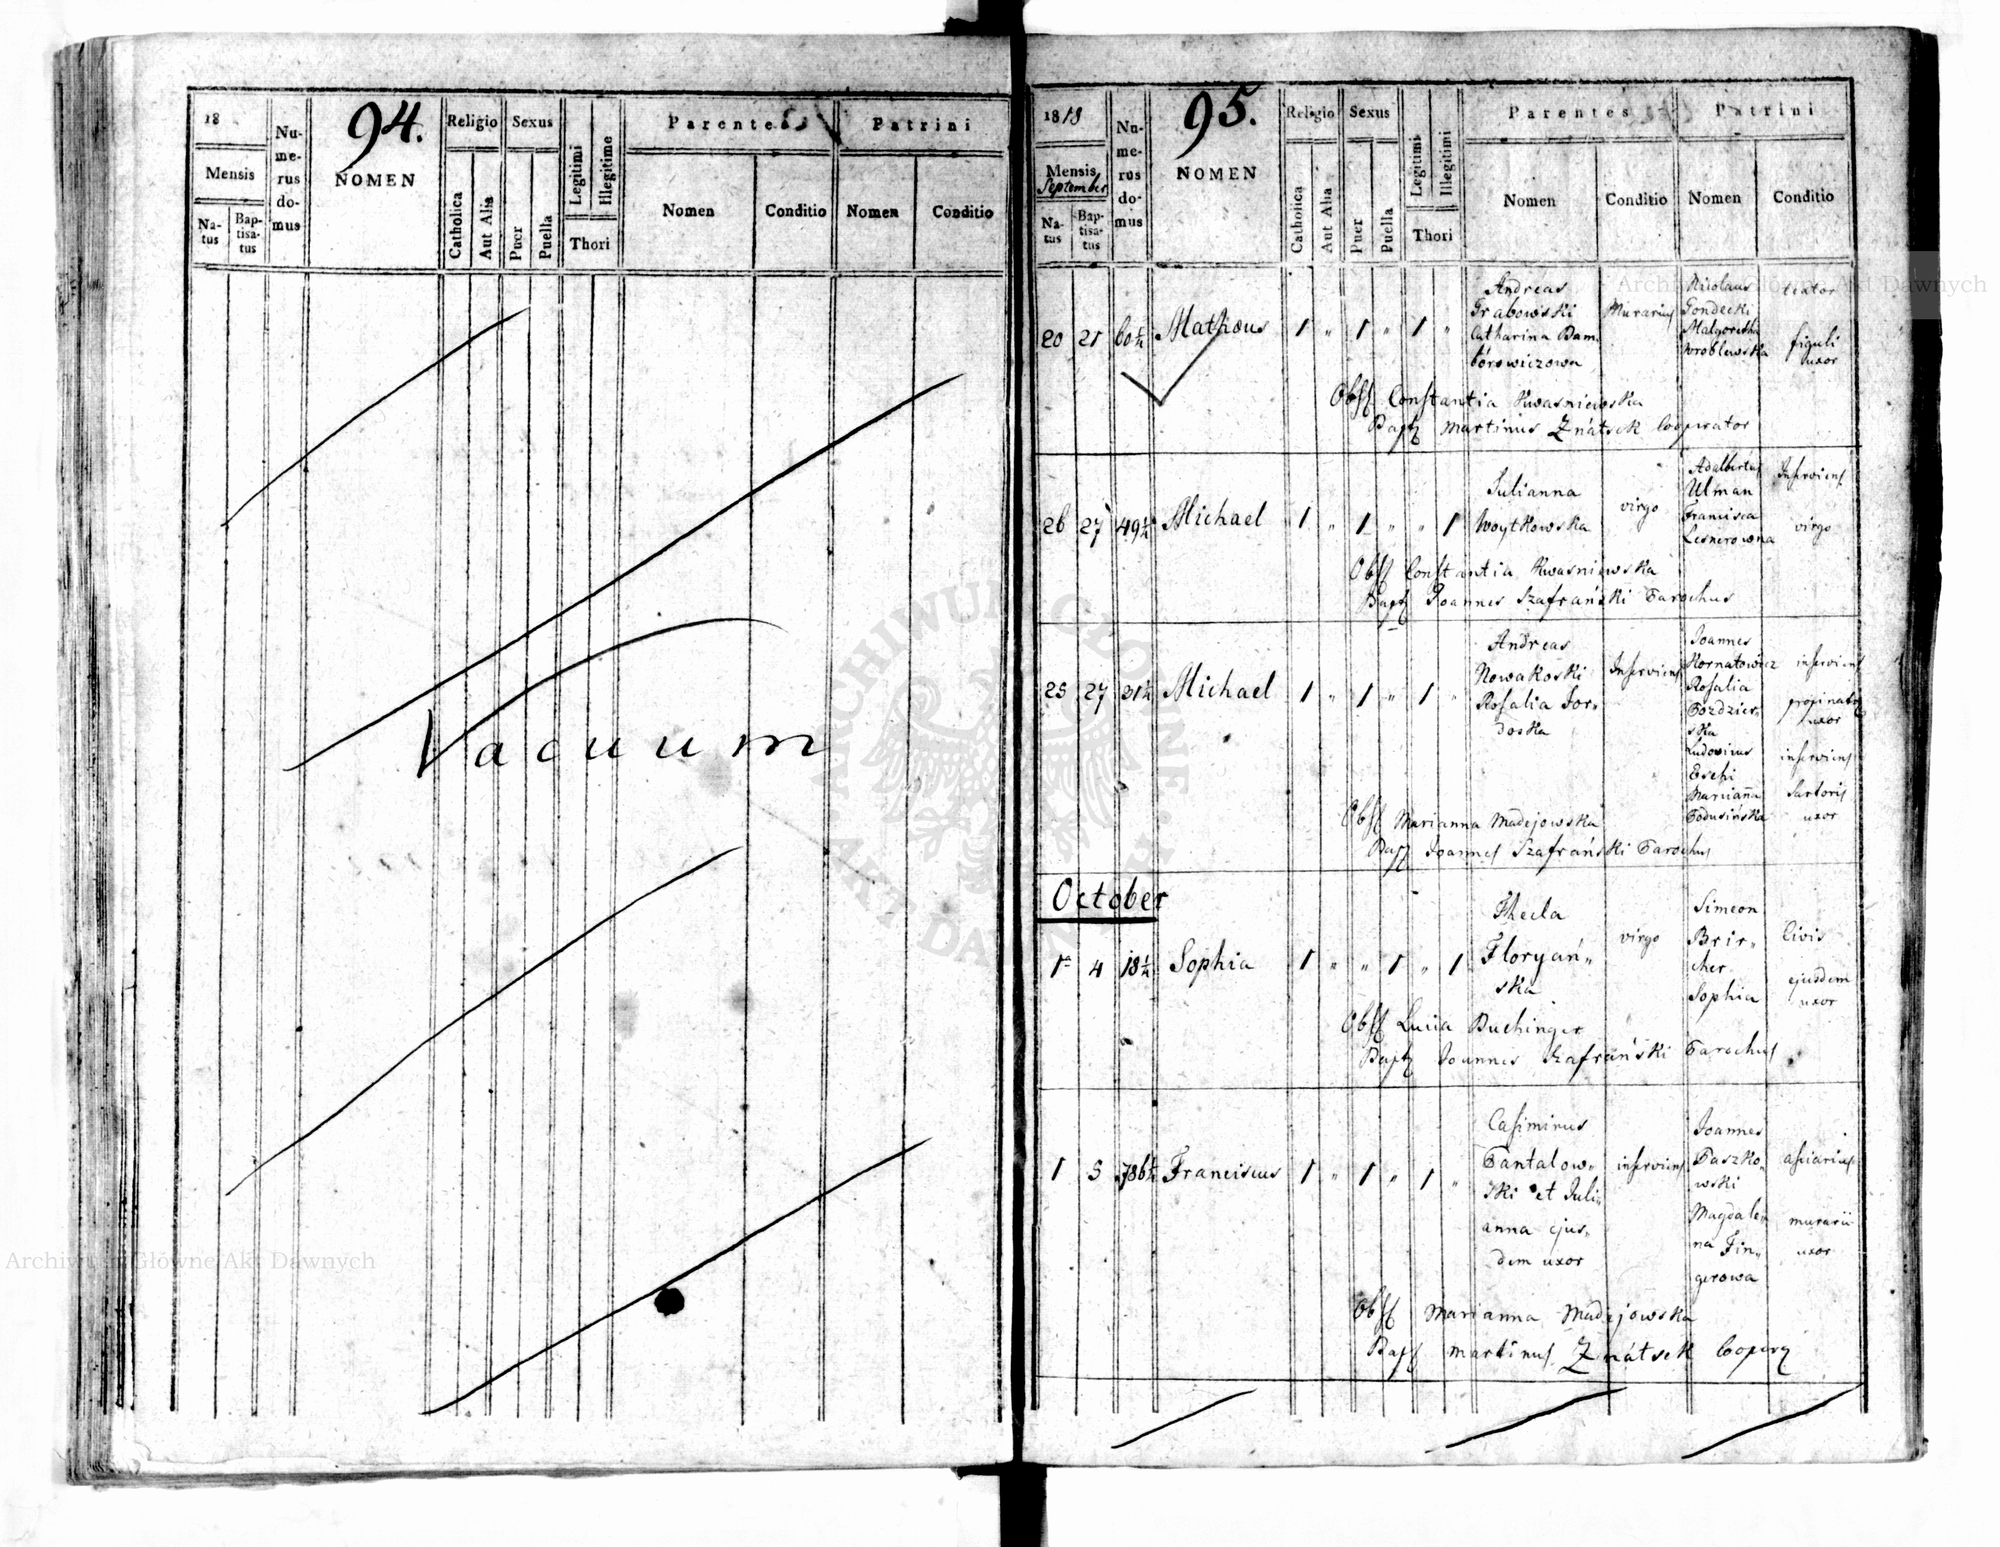 18
94.
Mensis
Na-
tus
Bap-
tisa-
tus
Nu-
me-
rus
do-
mus
NOMEN
Religio
Catholica
Aut Alia
Sexus
Puer
Puella
Legitimi
Illegitime
Thori
Parentes
Nomen
Conditio
Patrini
Nomen
Conditio
Vacuum
1818
95.
Mensis
September
Na-
tus
Bap-
tisa-
tus
Nu-
me-
rus
do-
mus
NOMEN
Religio
Catholica
Aut Alia
Sexus
Puer
Puella
Legitimi
Illegitimi
Thori
Parentes
Nomen
Conditio
Patrini
Nomen
Conditio
20 21 Mathæus 1 " 1 " 1 "
Andreas
Grabowski
Catharina Bam,
borowiczowa
Murarius
Nicolaus
Gondecki
Malgoretha
Wroblewska
figuli
uxor
Obst Constantia Kwasniewska
Bapt Martinus Znátsek Cooperator
26 27 49 Michael 1 " 1 " " 1
Julianna
Woytkowska
virgo
Adalbertus
Ulman
Francisca
Lesnerowna
Inserviens
virgo
Obst Constantia Kwasniewska
Bapt Joannes Szafrański Parochus
25 27 Michael 1 " 1 " 1 "
Andreas
Nowakoski
Rosalia Jor,
doska
Inserviens
Joannes
Kornatowicz
Rosalia
Gozdzier,
ska
Ludovicus
Eschi
Marianna
Podusińska
inserviens
propinator
uxor
inserviens
Sartoris
uxor
Obst Marianna Madejowska
Bapt Joannes Szafrański Parochus
October
1 4 18 Sophia 1 " " 1 " 1
Thecla
Floryań"
ska
virgo
Simeon
Brir,
cher
Sophia
Civis
ejusdem
uxor
Obst Lucia Buchinger
Bapt Joannes Szafrański Parochus
1 5 Franciscus 1 " 1 " 1 "
Casimirus
Pantalow"
ski et Juli"
anna ejus"
dem uxor
inserviens
Joannes
Paszko,
wski
Magdale"
na Fin"
gerowa
asciarius
murarii
uxor
Obst Marianna Madejowska
Bapt Martinus Znátsek Cooper
Archiwum Główne Akt Dawnych
Archiwum Główne Akt Dawnych
ARCHIWUM GŁÓWNE
AKT DAWNYCH